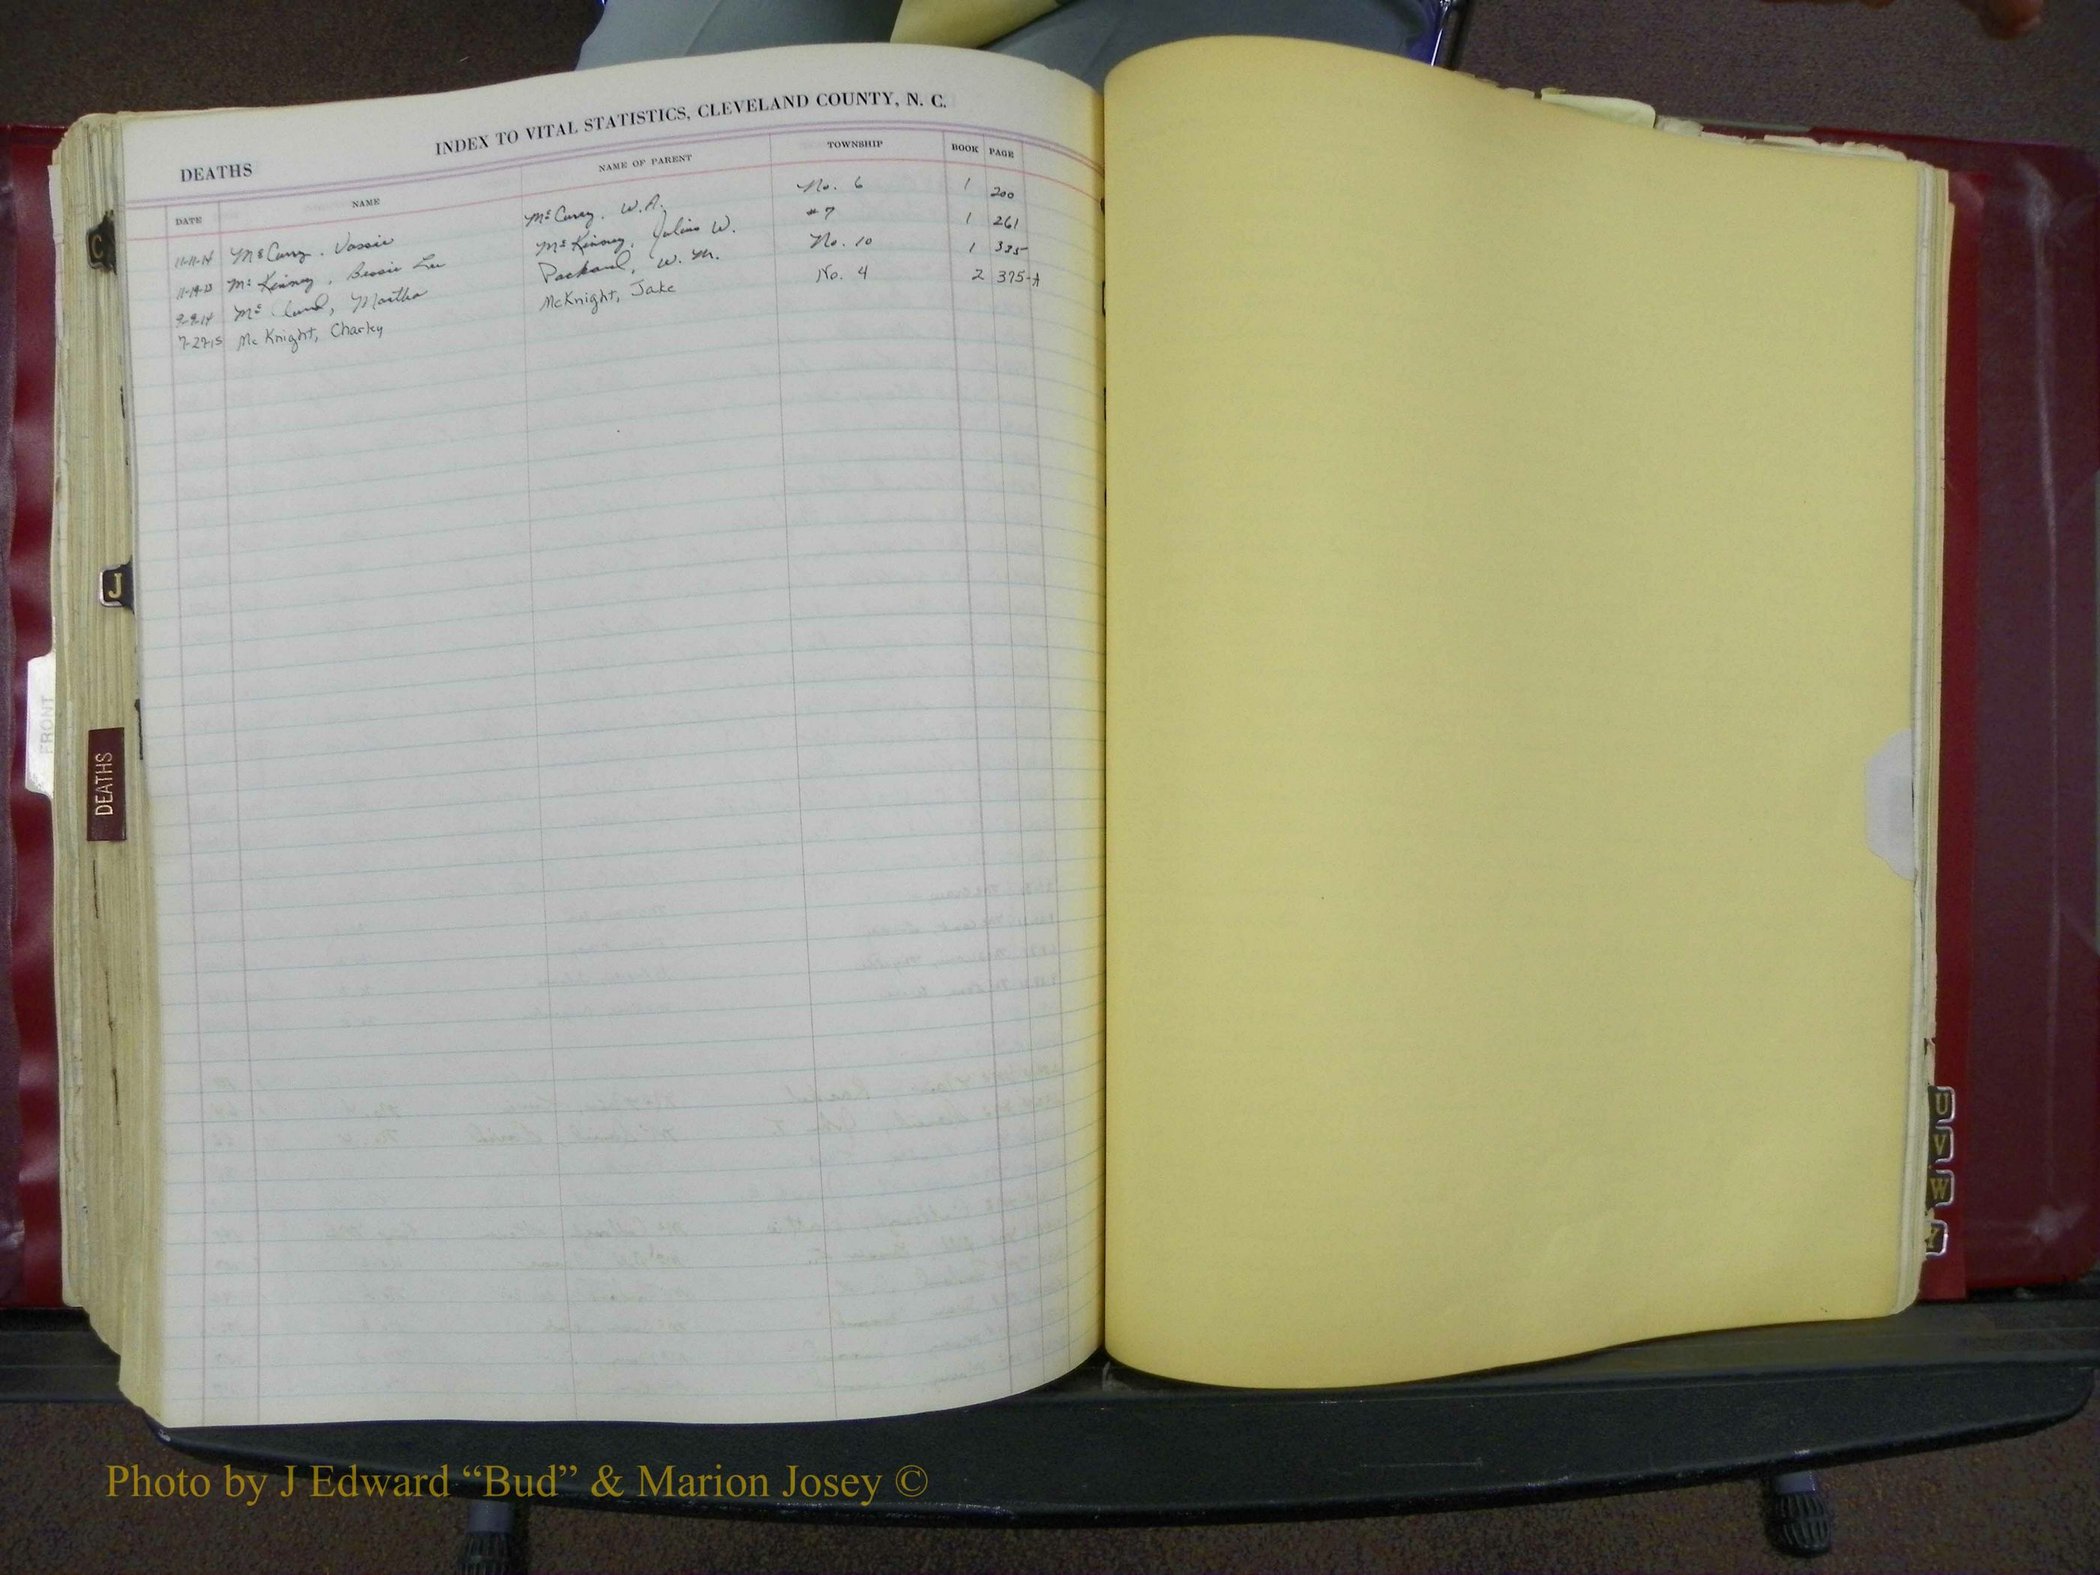 INDEX TO VITAL STATISTICS, CLEVELAND COUNTY, N. C.
DEATHS
DATE NAME NAME OF PARENT TOWNSHIP BOOK PAGE
11-11-14 McCurry, Vassie McCurry, W.A. No. 6 1 200
McKinney, Bessie Lee McKinney, Julius W. #7 1 261
9-9-14 Martha Packard, W. M. No. 10 1 335
7-27-15 McKnight, Charley McKnight, Jake No. 4 2 375-A
C
J
FRONT
DEATHS
U
V
W
Y
Photo by J Edward “Bud” & Marion Josey ©